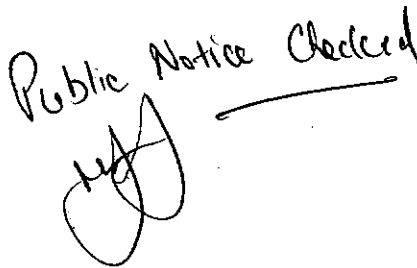 Public Notice Checked